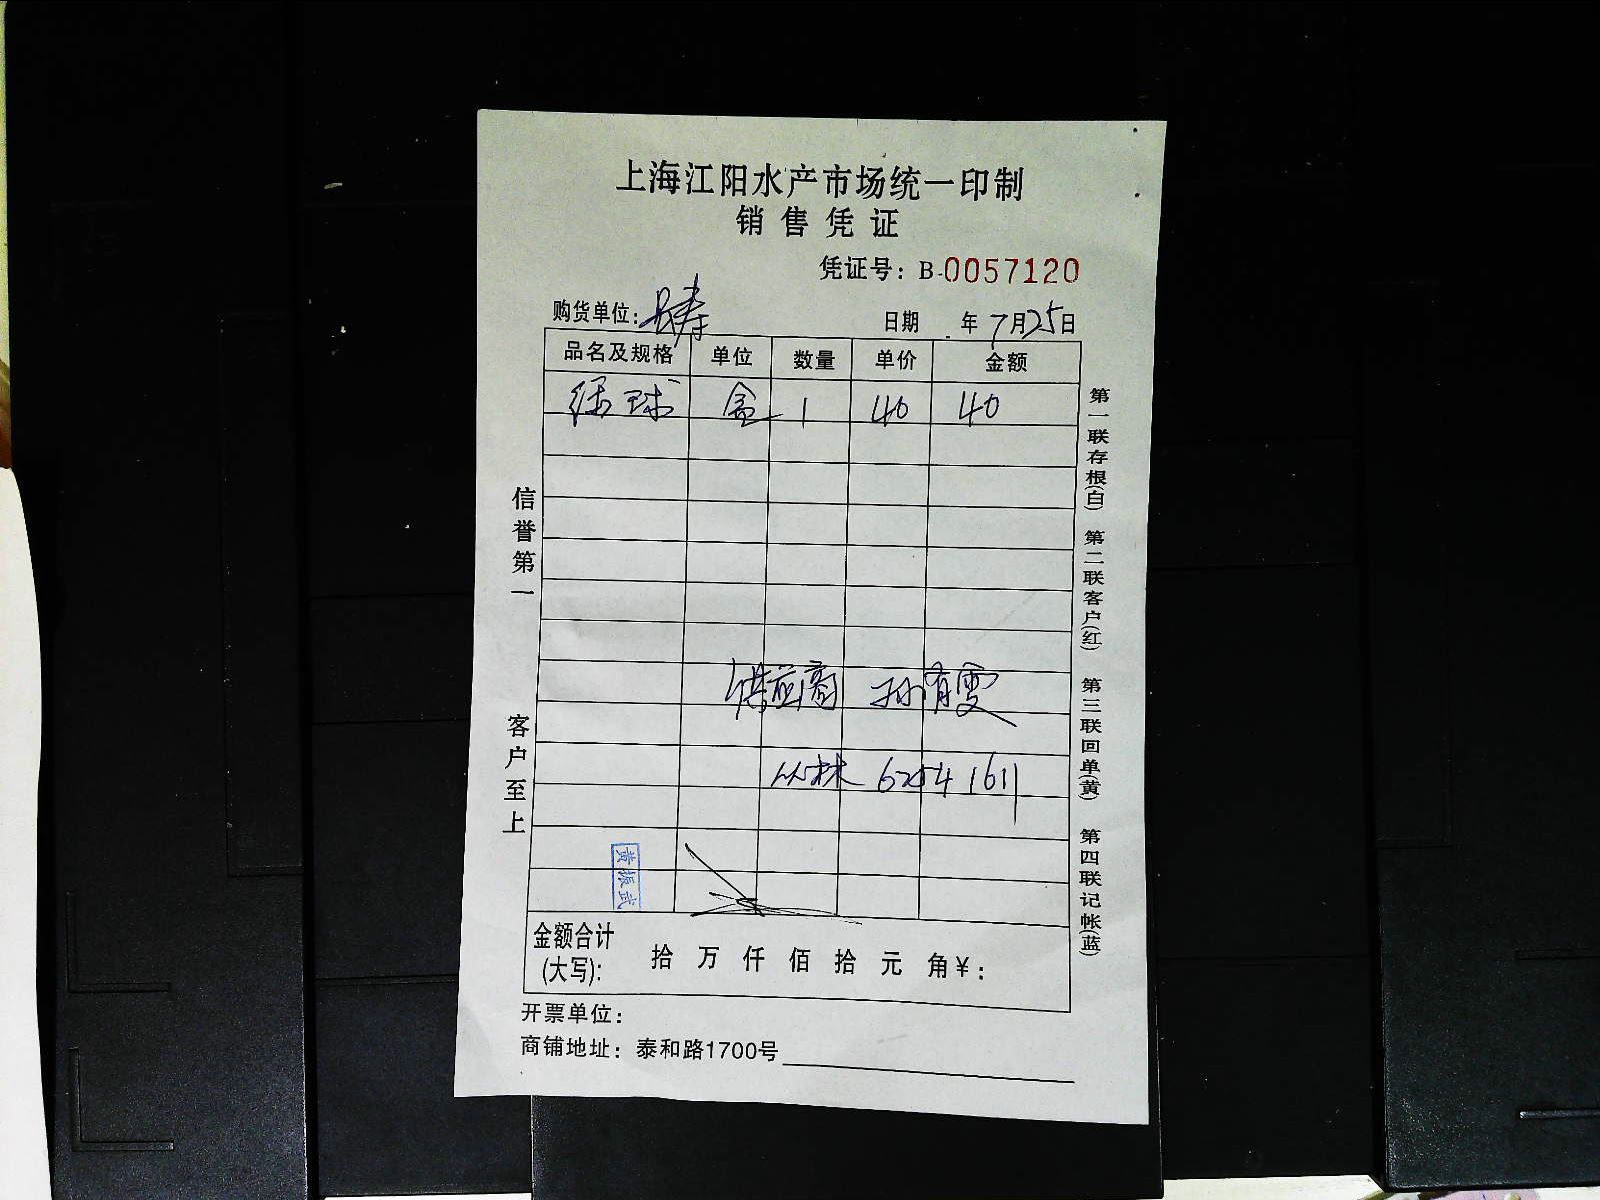 上海江阳水产市场统一印制
销售凭证
凭证号：B-0057120
购货单位：
日期 年 7月25日
品名及规格 单位 数量 单价 金额
绿球 盒 1 40 40
供应商 孙有雯
丛林 62541611
黄振武
金额合计(大写)： 拾 万 仟 佰 拾 元 角￥：
开票单位：
商铺地址：泰和路1700号
信誉第一
客户至上
第一联存根(白) 第二联客户(红) 第三联回单(黄) 第四联记帐(蓝)